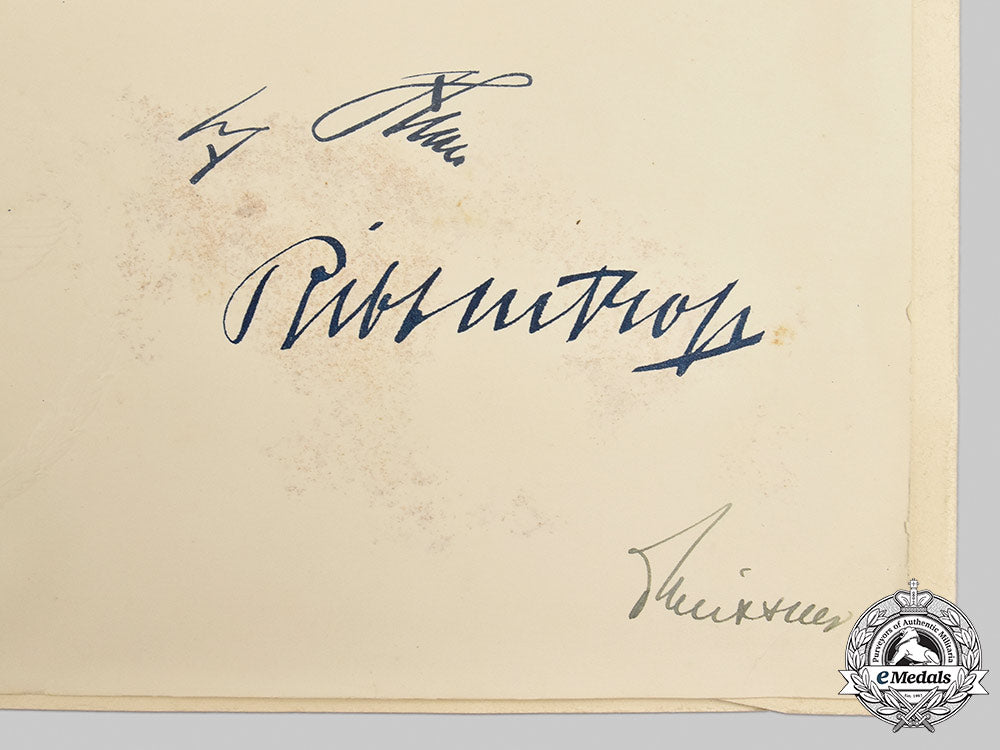 Ribbentrop
Meissner
Purveyors of Authentic Militaria
eMedals
Est. 1967